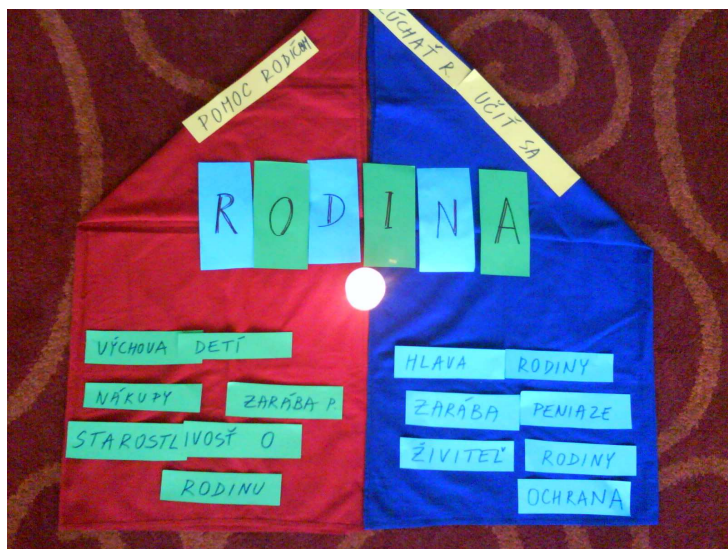 POMOC RODIČOM
R
UČIŤ SA
RODINA
VÝCHOVA DETÍ
NÁKUPY ZARÁBA P.
STAROSTLIVOSŤ O
RODINU
HLAVA RODINY
ZARÁBA PENIAZE
ŽIVITEĽ RODINY
OCHRANA